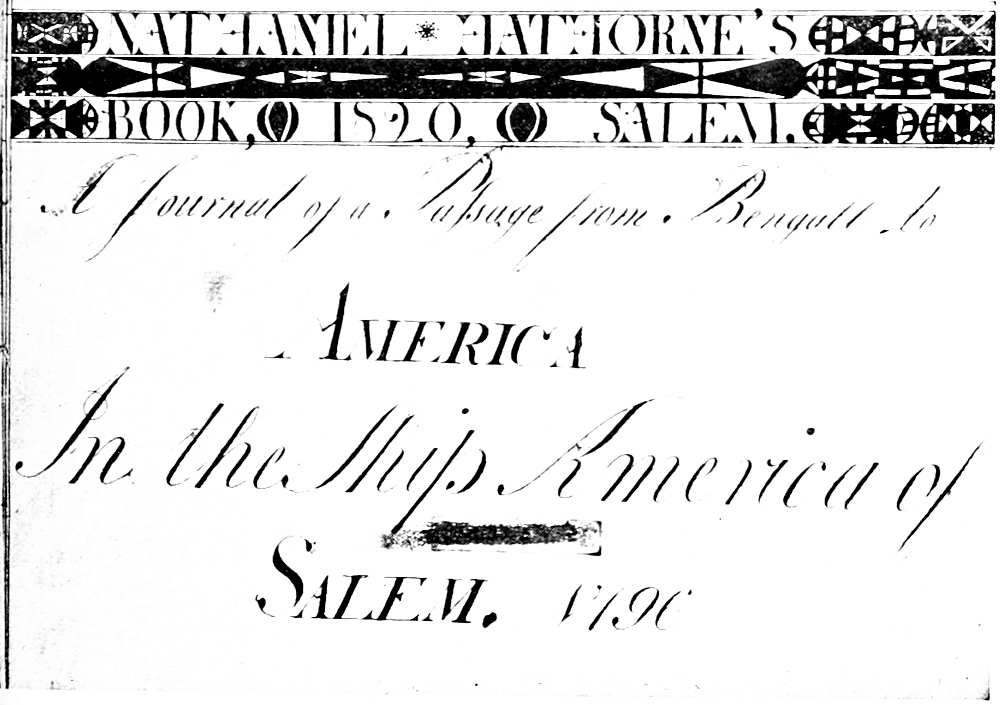 NATHANIEL * HATHORNE'S
BOOK, 1820, SALEM.
A Journal of a Passage from Bengall to
AMERICA
In the Ship America of
SALEM. 1796